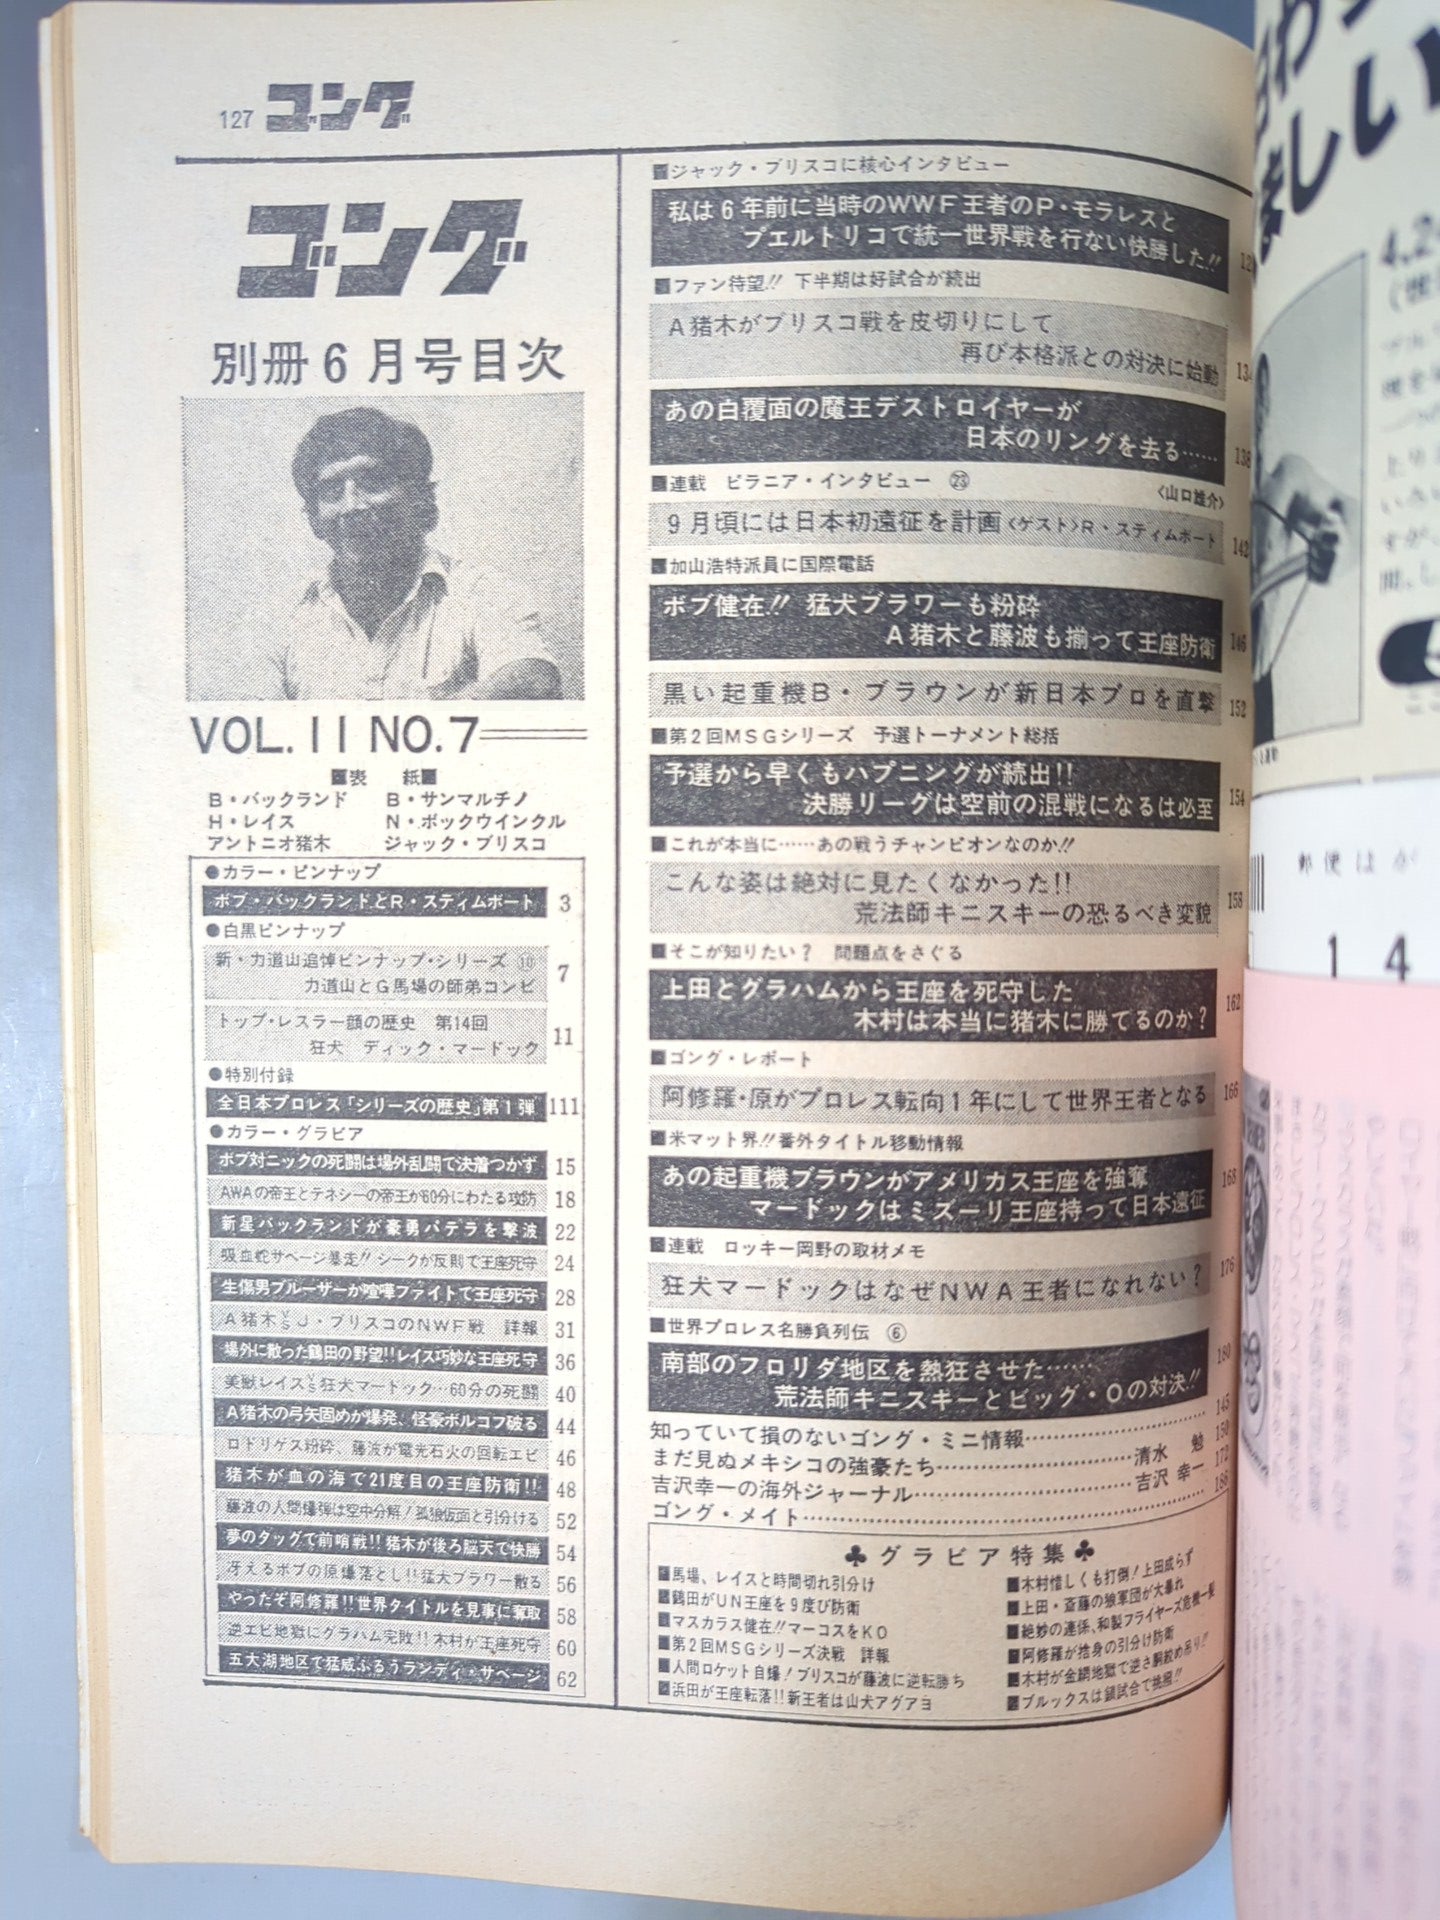 127 ゴング
ゴング
別冊6月号目次
VOL.11 NO.7
■表 紙■
B・バックランド B・サンマルチノ
H・レイス N・ボックウインクル
アントニオ猪木 ジャック・ブリスコ
●カラー・ピンナップ
ボブ・バックランドとR・スティムボート 3
●白黒ピンナップ
新・力道山追悼ピンナップ・シリーズ ⑩
力道山とG馬場の師弟コンビ 7
トップ・レスラー顔の歴史 第14回
狂犬 ディック・マードック 11
●特別付録
全日本プロレス「シリーズの歴史」第1弾 111
●カラー・グラビア
ボブ対ニックの死闘は場外乱闘で決着つかず 15
AWAの帝王とテネシーの帝王が60分にわたる攻防 18
新星バックランドが豪勇パテラを撃波 22
吸血蛇サベージ暴走!!シークが反則で王座死守 24
生傷男ブルーザーが喧嘩ファイトで王座死守 28
A猪木VSJ・ブリスコのNWF戦 詳報 31
場外に散った鶴田の野望!!レイス巧妙な王座死守 36
美獣レイスVS狂犬マードック…60分の死闘 40
A猪木の弓矢固めが爆発、怪豪ボルコフ破る 44
ロドリゲス粉砕、藤波が電光石火の回転エビ 46
猪木が血の海で21度目の王座防衛!! 48
藤波の人間爆弾は空中分解!孤狼仮面と引分ける 52
夢のタッグで前哨戦!!猪木が後ろ脳天で快勝 54
冴えるボブの原爆落とし!!猛犬ブラワー散る 56
やったぞ阿修羅!!世界タイトルを見事に奪取 58
逆エビ地獄にグラハム完敗!!木村が王座死守 60
五大湖地区で猛威ふるうランディ・サベージ 62
■ジャック・ブリスコに核心インタビュー
私は6年前に当時のWWF王者のP・モラレスと
プエルトリコで統一世界戦を行ない快勝した!!
■ファン待望!! 下半期は好試合が続出
A猪木がブリスコ戦を皮切りにして
再び本格派との対決に始動 134
あの白覆面の魔王デストロイヤーが
日本のリングを去る…… 138
■連載 ピラニア・インタビュー ㉓
〈山口雄介〉
9月頃には日本初遠征を計画〈ゲスト〉R・スティムボート 142
■加山浩特派員に国際電話
ボブ健在!! 猛犬ブラワーも粉砕
A猪木と藤波も揃って王座防衛 146
黒い起重機B・ブラウンが新日本プロを直撃 152
■第2回MSGシリーズ 予選トーナメント総括
予選から早くもハプニングが続出!!
決勝リーグは空前の混戦になるは必至 154
■これが本当に……あの戦うチャンピオンなのか!!
こんな姿は絶対に見たくなかった!!
荒法師キニスキーの恐るべき変貌 158
■そこが知りたい? 問題点をさぐる
上田とグラハムから王座を死守した
木村は本当に猪木に勝てるのか? 162
■ゴング・レポート
阿修羅・原がプロレス転向1年にして世界王者となる 166
■米マット界!!番外タイトル移動情報
あの起重機ブラウンがアメリカス王座を強奪
マードックはミズーリ王座持って日本遠征 168
■連載 ロッキー岡野の取材メモ
狂犬マードックはなぜNWA王者になれない? 176
■世界プロレス名勝負列伝 ⑥
南部のフロリダ地区を熱狂させた……
荒法師キニスキーとビッグ・Oの対決!! 180
知っていて損のないゴング・ミニ情報…… 145
まだ見ぬメキシコの強豪たち……清水 勉 150
吉沢幸一の海外ジャーナル……吉沢 幸一 172
ゴング・メイト…… 186
♣グラビア特集♣
■馬場、レイスと時間切れ引分け
■鶴田がUN王座を9度び防衛
■マスカラス健在!!マーコスをKO
■第2回MSGシリーズ決戦 詳報
■人間ロケット自爆!ブリスコが藤波に逆転勝ち
■浜田が王座転落!!新王者は山犬アグアヨ
■木村惜しくも打倒!上田成らず
■上田・斎藤の狼軍団が大暴れ
■絶妙の連係、和製フライヤーズ危機一髪
■阿修羅が捨身の引分け防衛
■木村が金網地獄で逆さ胴絞め吊り!!
■ブルックスは鎖試合で挑発!!
郵便はが
1 4